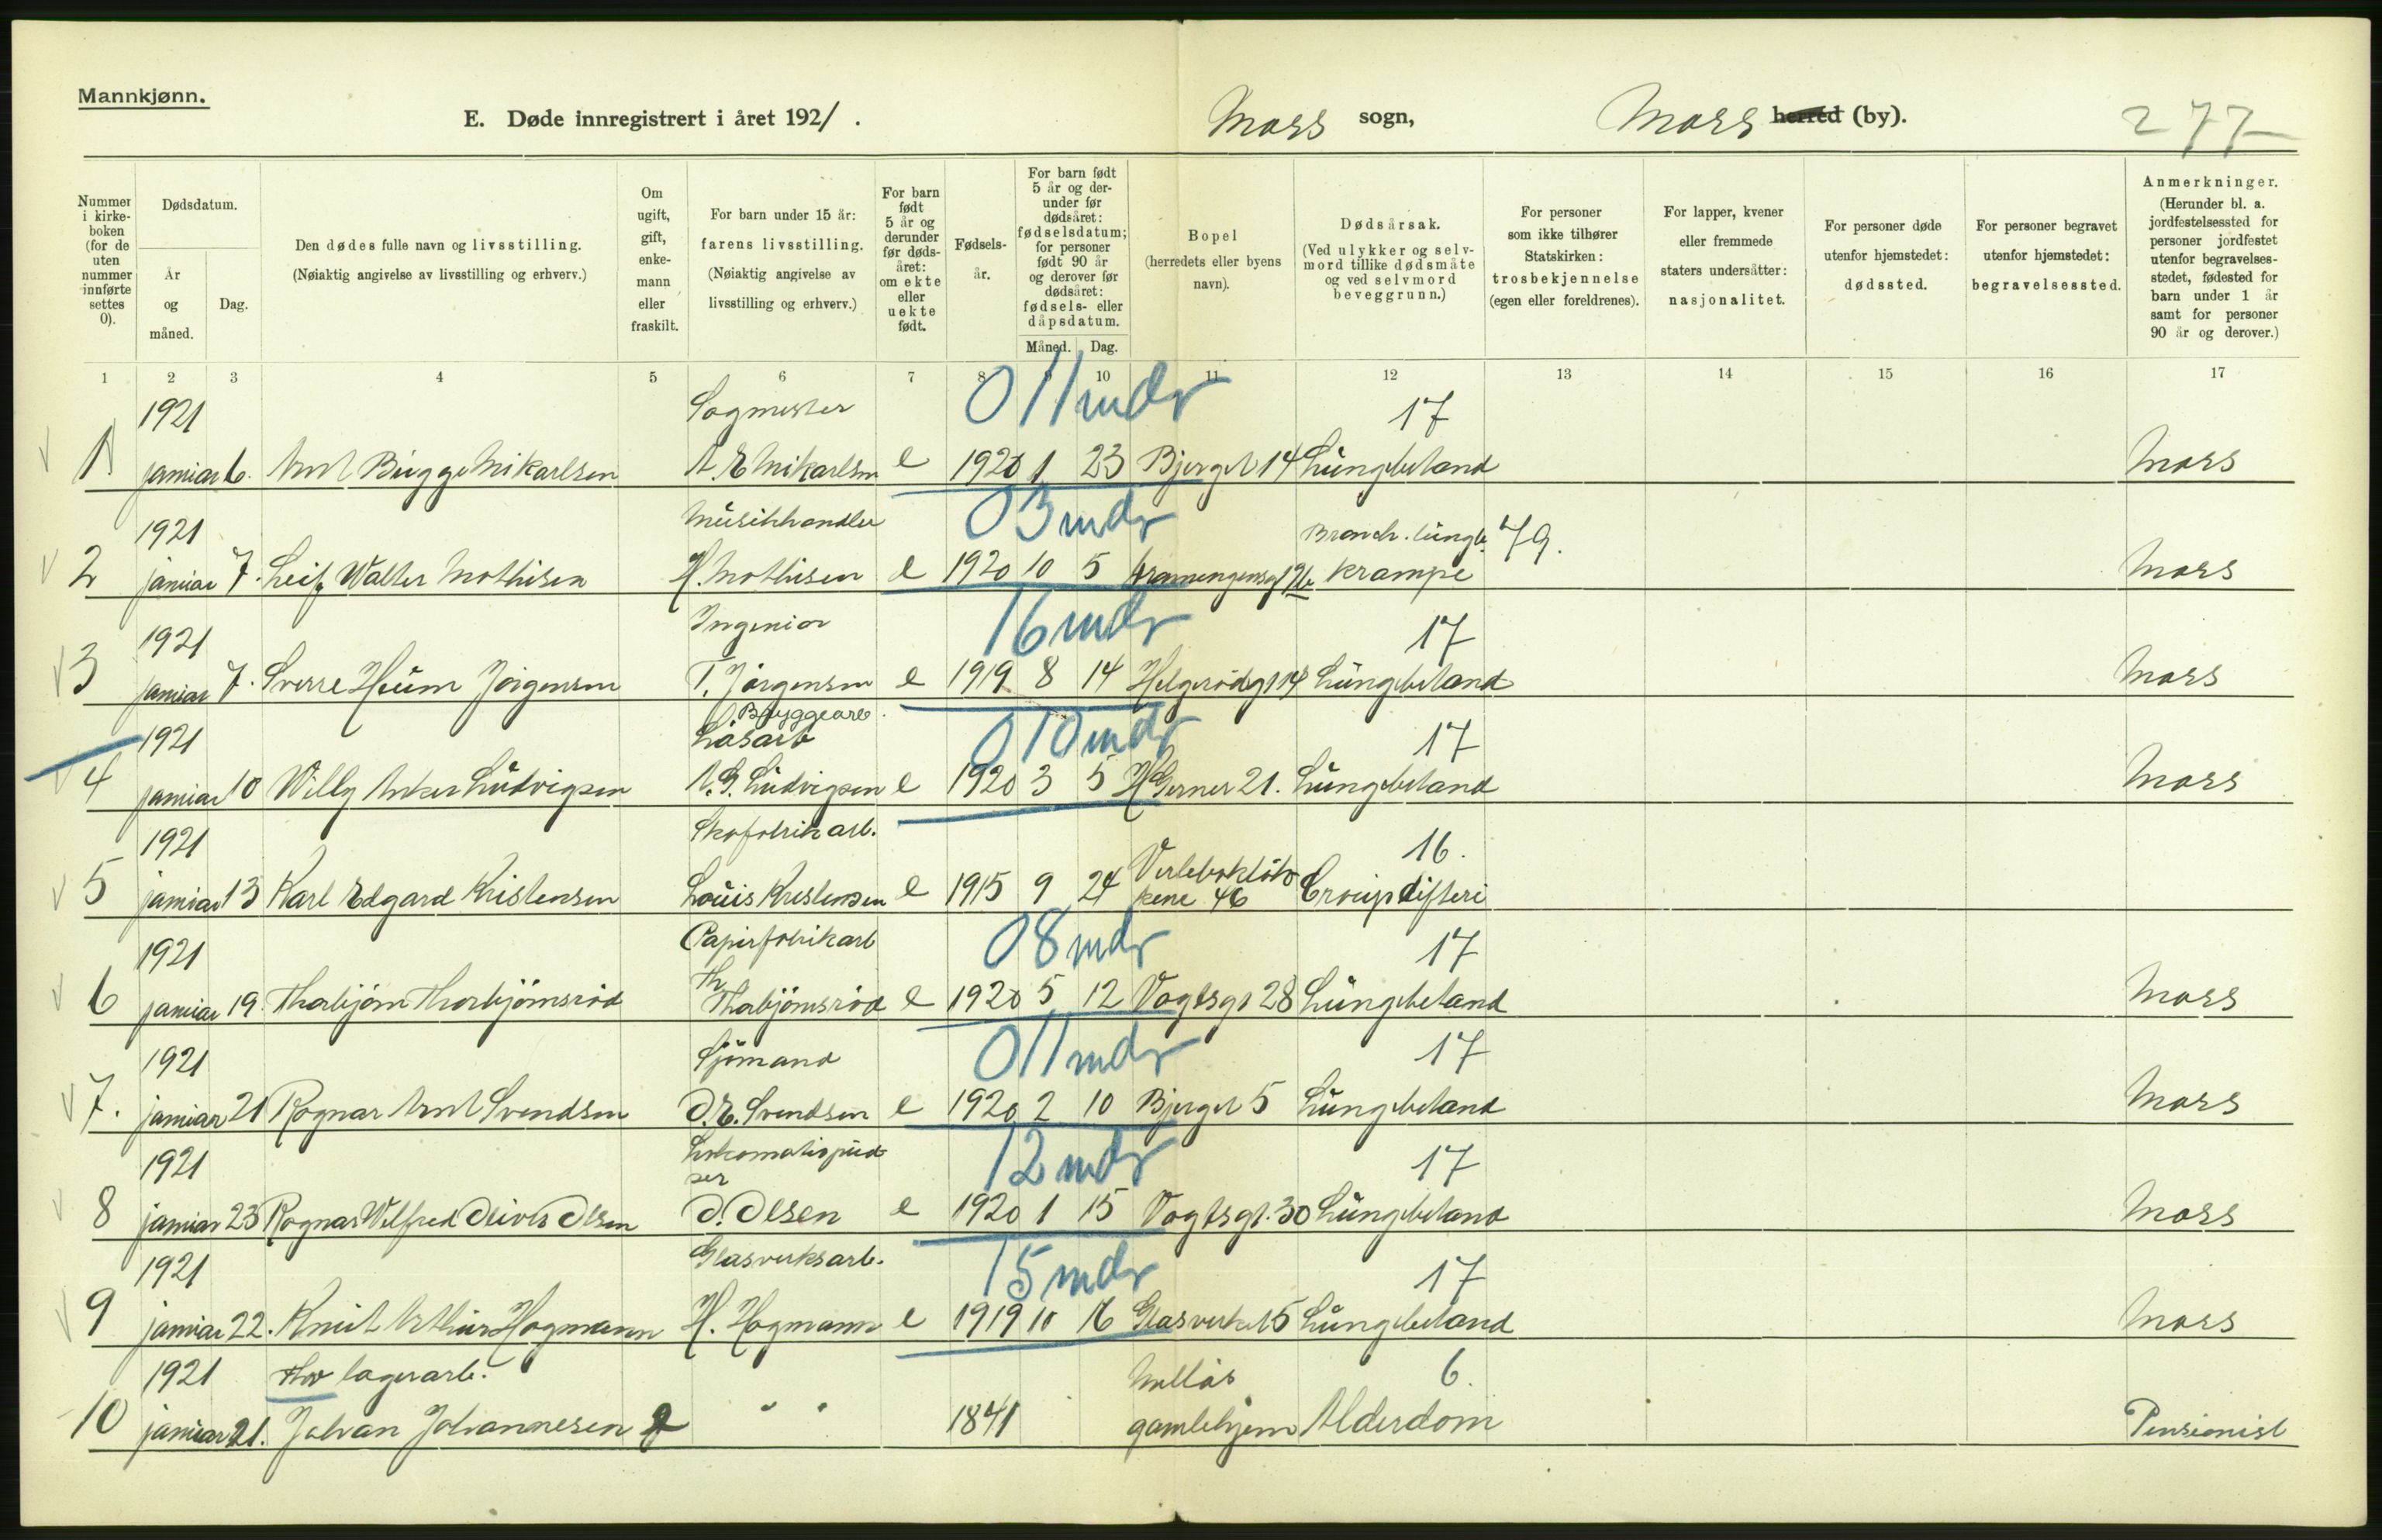 Mannkjønn.
E. Døde innregistrert i året 1921.
Moss sogn,
Moss herred (by).
277
Nummer i kirke-boken (for de uten nummer innførte settes 0).
Dødsdatum.
År og måned.
Dag.
Den dødes fulle navn og livsstilling.
(Nøiaktig angivelse av livsstilling og erhverv.)
Om ugift, gift, enke-mann eller fraskilt.
For barn under 15 år: farens livsstilling.
(Nøiaktig angivelse av livsstilling og erhverv.)
For barn født 5 år og derunder før døds-året: om ekte eller uekte født.
Fødsels-år.
For barn født 5 år og der-under før dødsåret: fødselsdatum; for personer født 90 år og derover før dødsåret: fødsels- eller dåpsdatum.
Måned. Dag.
Bopel (herredets eller byens navn).
Dødsårsak.
(Ved ulykker og selv-mord tillike dødsmåte og ved selvmord beveggrunn.)
For personer som ikke tilhører Statskirken: trosbekjennelse (egen eller foreldrenes).
For lapper, kvener eller fremmede staters undersåtter: nasjonalitet.
For personer døde utenfor hjemstedet: dødssted.
For personer begravet utenfor hjemstedet: begravelsessted.
Anmerkninger.
(Herunder bl. a. jordfestelsessted for personer jordfestet utenfor begravelses-stedet, fødested for barn under 1 år samt for personer 90 år og derover.)
1 2 3 4 5 6 7 8 9 10 11 12 13 14 15 16 17
1921 Sagmester 0 11 mdr 17
1 januar 6. Arnt Bugge Mikarlsen A. E Mikarlsen e 1920 1 23 Bjerget 14 Lungebetænd Moss
1921 Musikhandler 0 3 mdr Bronch. lunge 79.
2 januar 7. Leif Walter Mathisen H. Mathisen e 1920 10 5 krampe Moss
1921 Ingeniør 16 mdr 17
3 januar 7. Sverre Heum Jørgensen T. Jørgensen e 1919 8 14 Helgerødgt 14 Lungebetænd Moss
1921 Bryggearb. Løsarb 0 10 mdr 17
4 januar 10 Willy Anker Ludvigsen A. G. Ludvigsen e 1920 3 5 H Gerner 21. Lungebetænd Moss
1921 Skofabrikarb. 16.
5 januar 13 Karl Edgard Kristensen Louis Kristensen e 1915 9 24 46 Croup difteri
1921 Papirfabrikarb 0 8 mdr 17
6 januar 19. Thorbjørn Thorbjørnsrød Th Thorbjørnsrød e 1920 5 12 Vogtsgt 28 Lungebetænd Moss
1921 Sjømand 0 11 mdr 17
7. januar 21 Ragnar Arnt Svendsen O. E. Svendsen e 1920 2 10 Bjerget 5 Lungebetænd Moss
1921 Lokomotivpudser 12 mdr 17
8 januar 23 Ragnar Wilfred Oliver Olsen O. Olsen e 1920 1 15 Vogtsgt. 30 Lungebetænd Moss
1921 Glasverksarb. 15 mdr 17
9 januar 22. Knut Arthur Hagmann H. Hagmann e 1919 10 16 Glasverket 5 Lungebetænd Moss
1921 lagerarb. Melløs 6.
10 januar 21. Johan Johannesen g " " 1841 gamlehjem Alderdom Pensionist